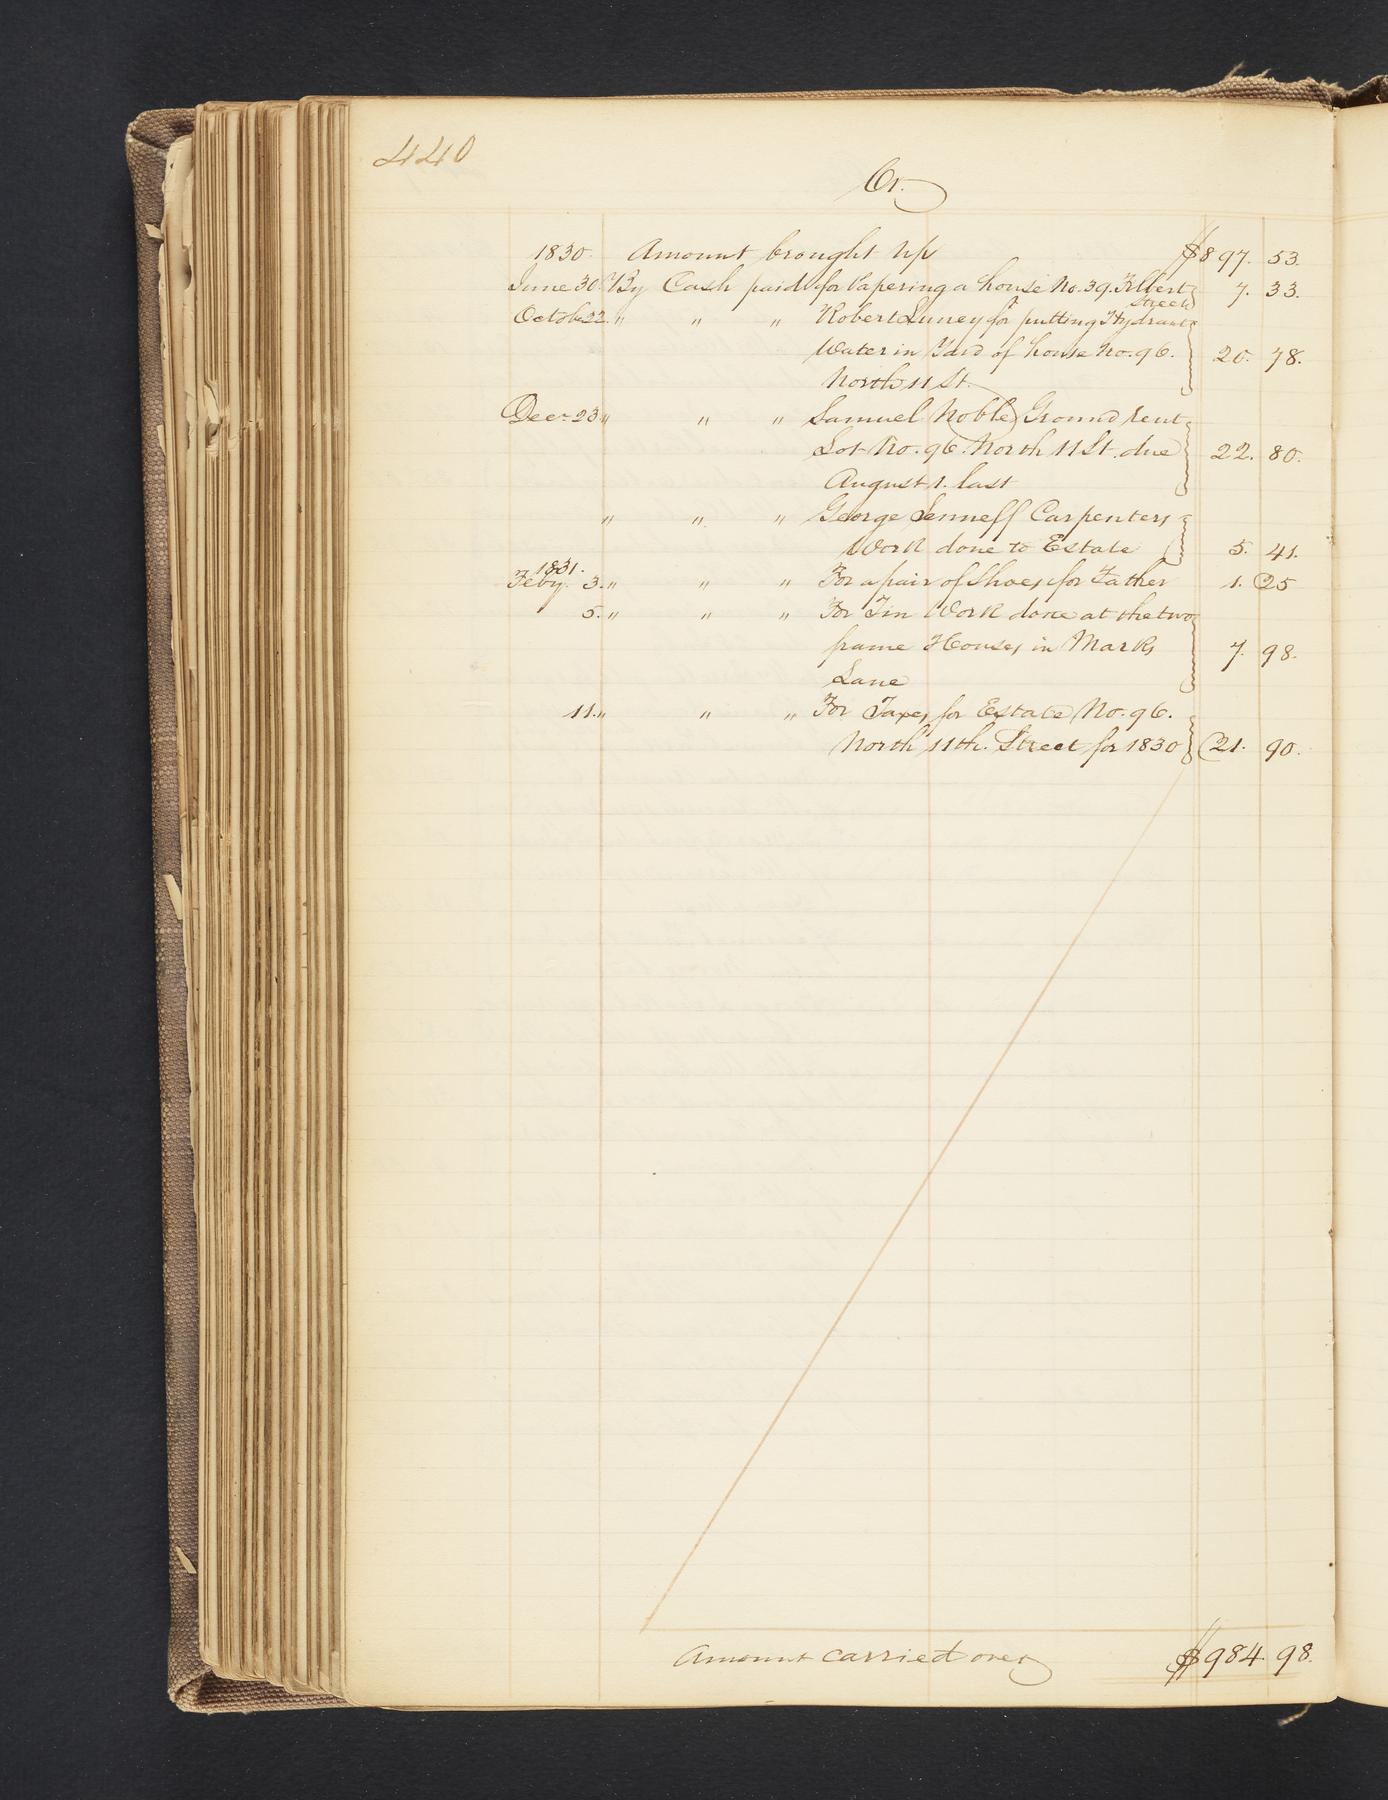 440
Cr.
1830. Amount brought up $897. 53.
June 30. By Cash paid for Papering a house No. 39. Filbert Street 7. 33.
Octob 22. " " " Robert Luney for putting Hydrant
Water in Yard of house No. 96. 20. 78.
North 11 St.
Decr. 23 " " " Samuel Noble Ground rent
Lot No. 96. North 11 St. due 22. 80.
August 1. last
" " " George Senneff Carpenters
Work done to Estate 5. 41.
1831.
Feby. 3. " " " For a pair of Shoes for Father 1. 25
5. " " " For Tin Work done at the two
frame Houses in Marks 7. 98.
Lane
11. " " " For Taxes for Estate No. 96.
North 11th. Street for 1830 21. 90.
Amount carried over $984. 98.